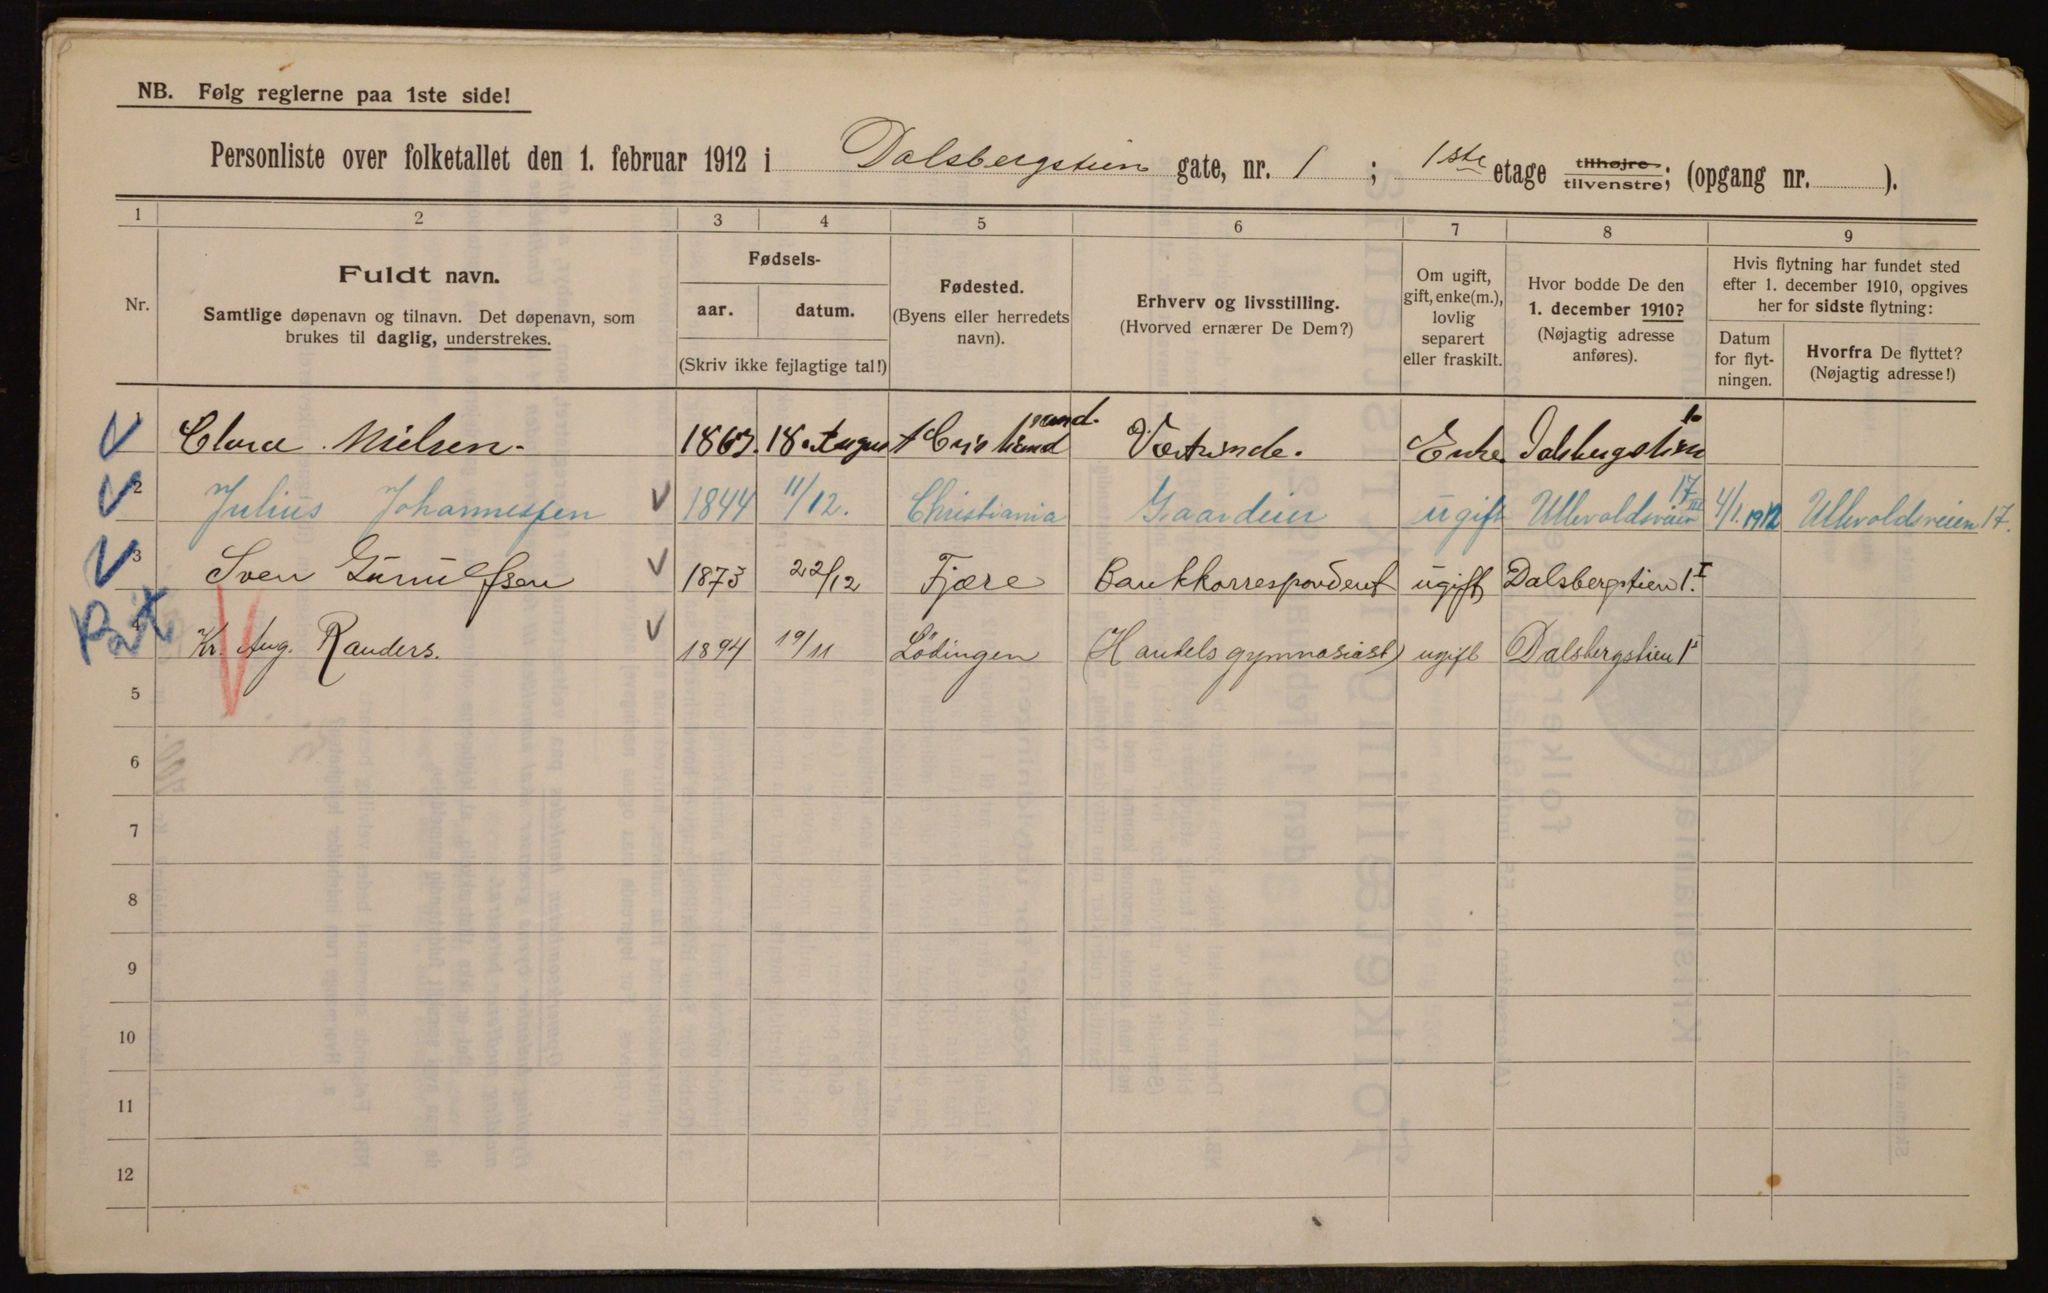 NB. Følg reglerne paa 1ste side!
Personliste over folketallet den 1. februar 1912 i Dalsbergstien gate, nr. 1 ; 1ste etage tilhøjre tilvenstre; (opgang nr. ).
1 2 3 4 5 6 7 8 9
Nr.
Fuldt navn.
Samtlige døpenavn og tilnavn. Det døpenavn, som
brukes til daglig, understrekes.
Fødsels-
aar. datum.
(Skriv ikke fejlagtige tal!)
Fødested.
(Byens eller herredets
navn).
Erhverv og livsstilling.
(Hvorved ernærer De Dem?)
Om ugift,
gift, enke(m.),
lovlig
separert
eller fraskilt.
Hvor bodde De den
1. december 1910?
(Nøjagtig adresse
anføres).
Hvis flytning har fundet sted
efter 1. december 1910, opgives
her for sidste flytning:
Datum
for flyt-
ningen.
Hvorfra De flyttet?
(Nøjagtig adresse!)
1 Clara Nielsen. 18 August Værtinde. Enke
2 Julius Johannessen 1844 11/12. Christiania Gaardeier ugift Ullevoldsveien 17 III 4/1. 1912 Ullevoldsveien 17.
3 Sven Gunulfsen 1873 22/12 Fjære Bankkorrespondent ugift Dalsbergstien 1. I
4 Kr. Aug. Randers. 1894 19/11 Lödingen (Handelsgymnasiast) ugift Dalsbergstien 1 I
5
6
7
8
9
10
11
12